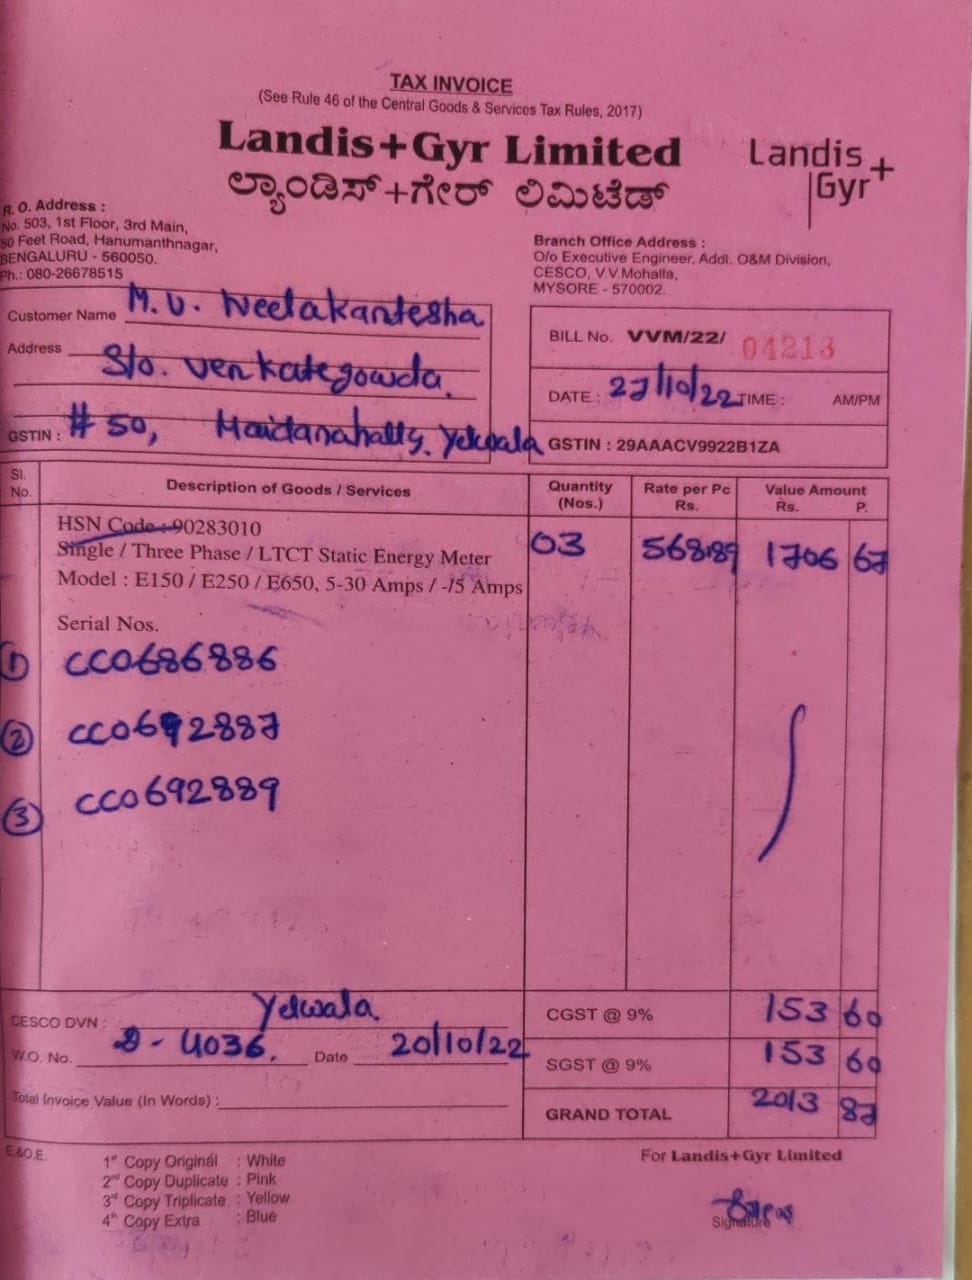 TAX INVOICE
(See Rule 46 of the Central Goods & Services Tax Rules, 2017)
Landis+Gyr Limited
ಲ್ಯಾಂಡಿಸ್+ಗೇರ್ ಲಿಮಿಟೆಡ್
Landis+
Gyr
R. O. Address :
No. 503, 1st Floor, 3rd Main,
50 Feet Road, Hanumanthnagar,
BENGALURU - 560050.
Ph.: 080-26678515
Branch Office Address :
O/o Executive Engineer, Addl. O&M Division,
CESCO, V.V.Mohalla,
MYSORE - 570002.
Customer Name M.V. Neelakantesha
Address S/o. Venkategowda.
GSTIN : # 50, Maidanahally, Yelwala
BILL No. VVM/22/ 04213
DATE : 27/10/22 TIME : AM/PM
GSTIN : 29AAACV9922B1ZA
Sl. No. Description of Goods / Services Quantity (Nos.) Rate per Pc Rs. Value Amount Rs. P.
HSN Code : 90283010
Single / Three Phase / LTCT Static Energy Meter 03 568.89 1706 67
Model : E150 / E250 / E650, 5-30 Amps / -/5 Amps
Serial Nos.
1 CC0686886
2 CC0692887
3 CC0692889
CESCO DVN : Yelwala.
W.O. No. D - 4036. Date 20/10/22
Total Invoice Value (In Words) :
CGST @ 9% 153 60
SGST @ 9% 153 60
GRAND TOTAL 2013 87
E.&O.E.
1st Copy Original : White
2nd Copy Duplicate : Pink
3rd Copy Triplicate : Yellow
4th Copy Extra : Blue
For Landis+Gyr Limited
Signature